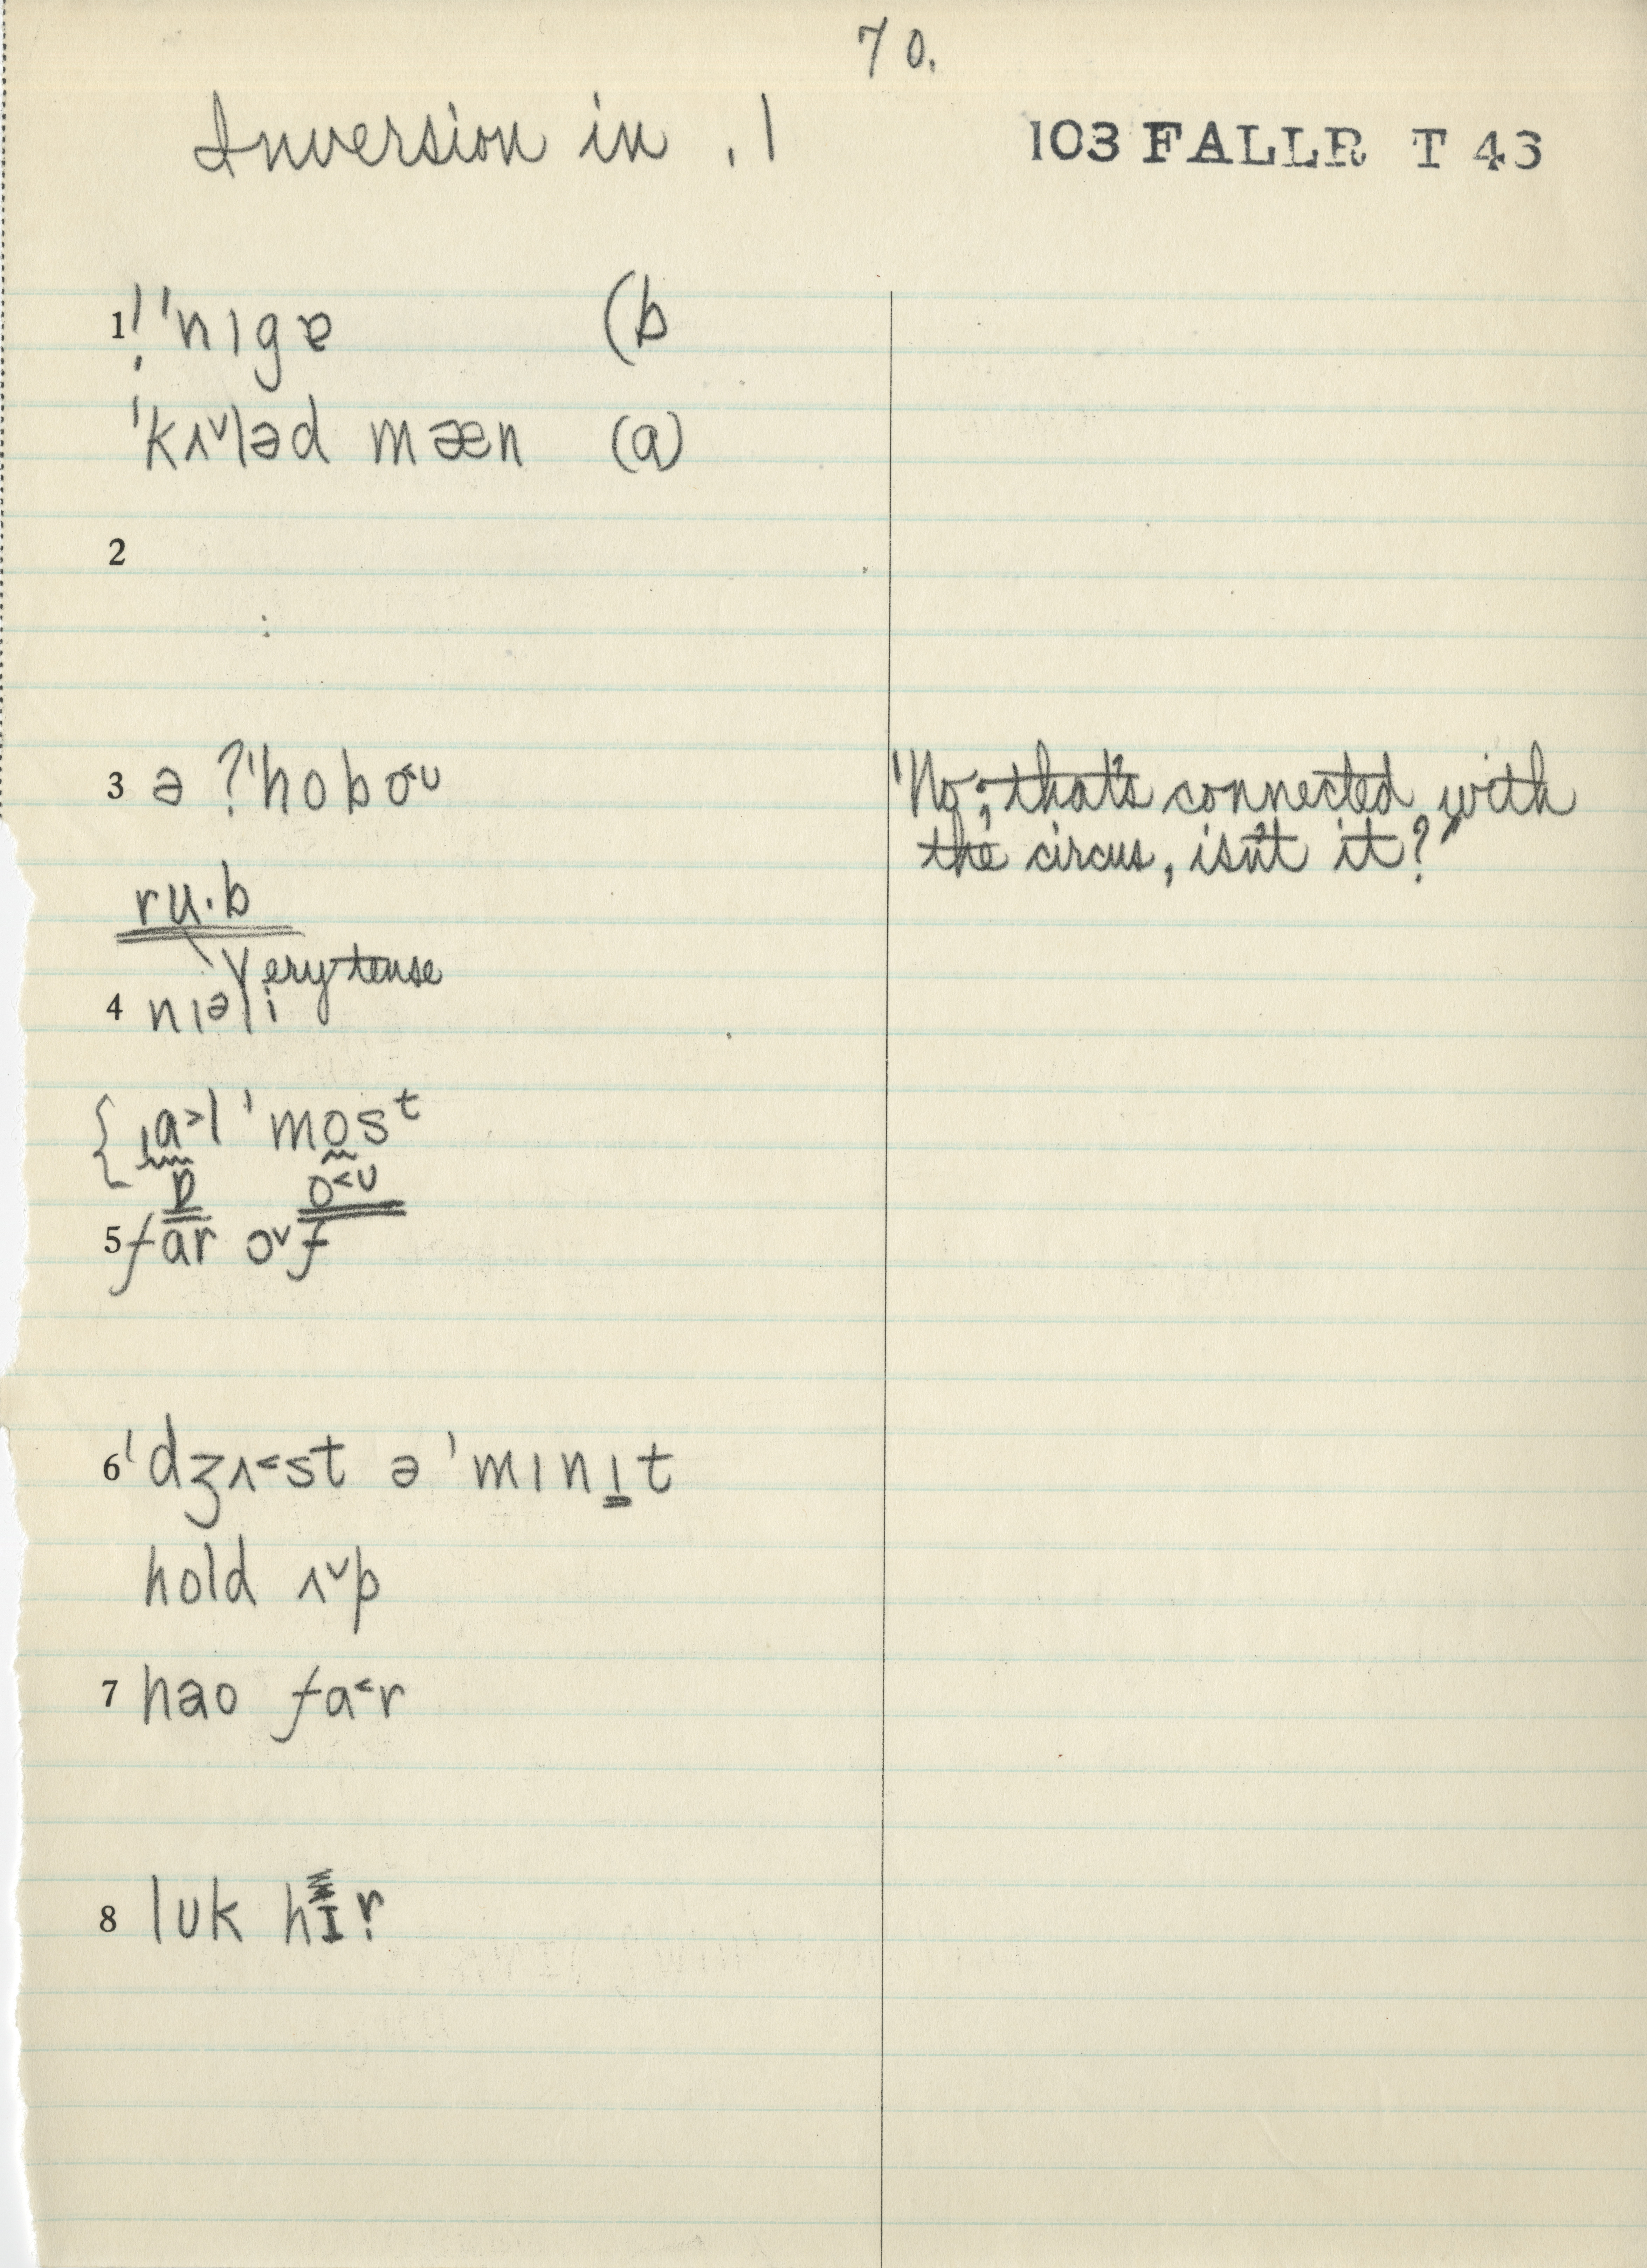 70.
Inversion in .1
103 FALLR T 43
1 !ˈnɪgɐ (b
ˈkʌ˅ləd mæn (a)
2
3 ə ?ˈhobo˂ʊ
"No; that's connected with
the circus, isn't it?"
ru·b
Very tense
4 nɪəli
{ ˌɑ˃l ˈmosᵗ
ɒ o˂ʊ
5 fɑr ɔ˅f
6 ˈdʒʌ˂st ə ˈmɪnɪt
hold ʌ˅p
7 hao fɑ˂r
8 lʊk hɪr